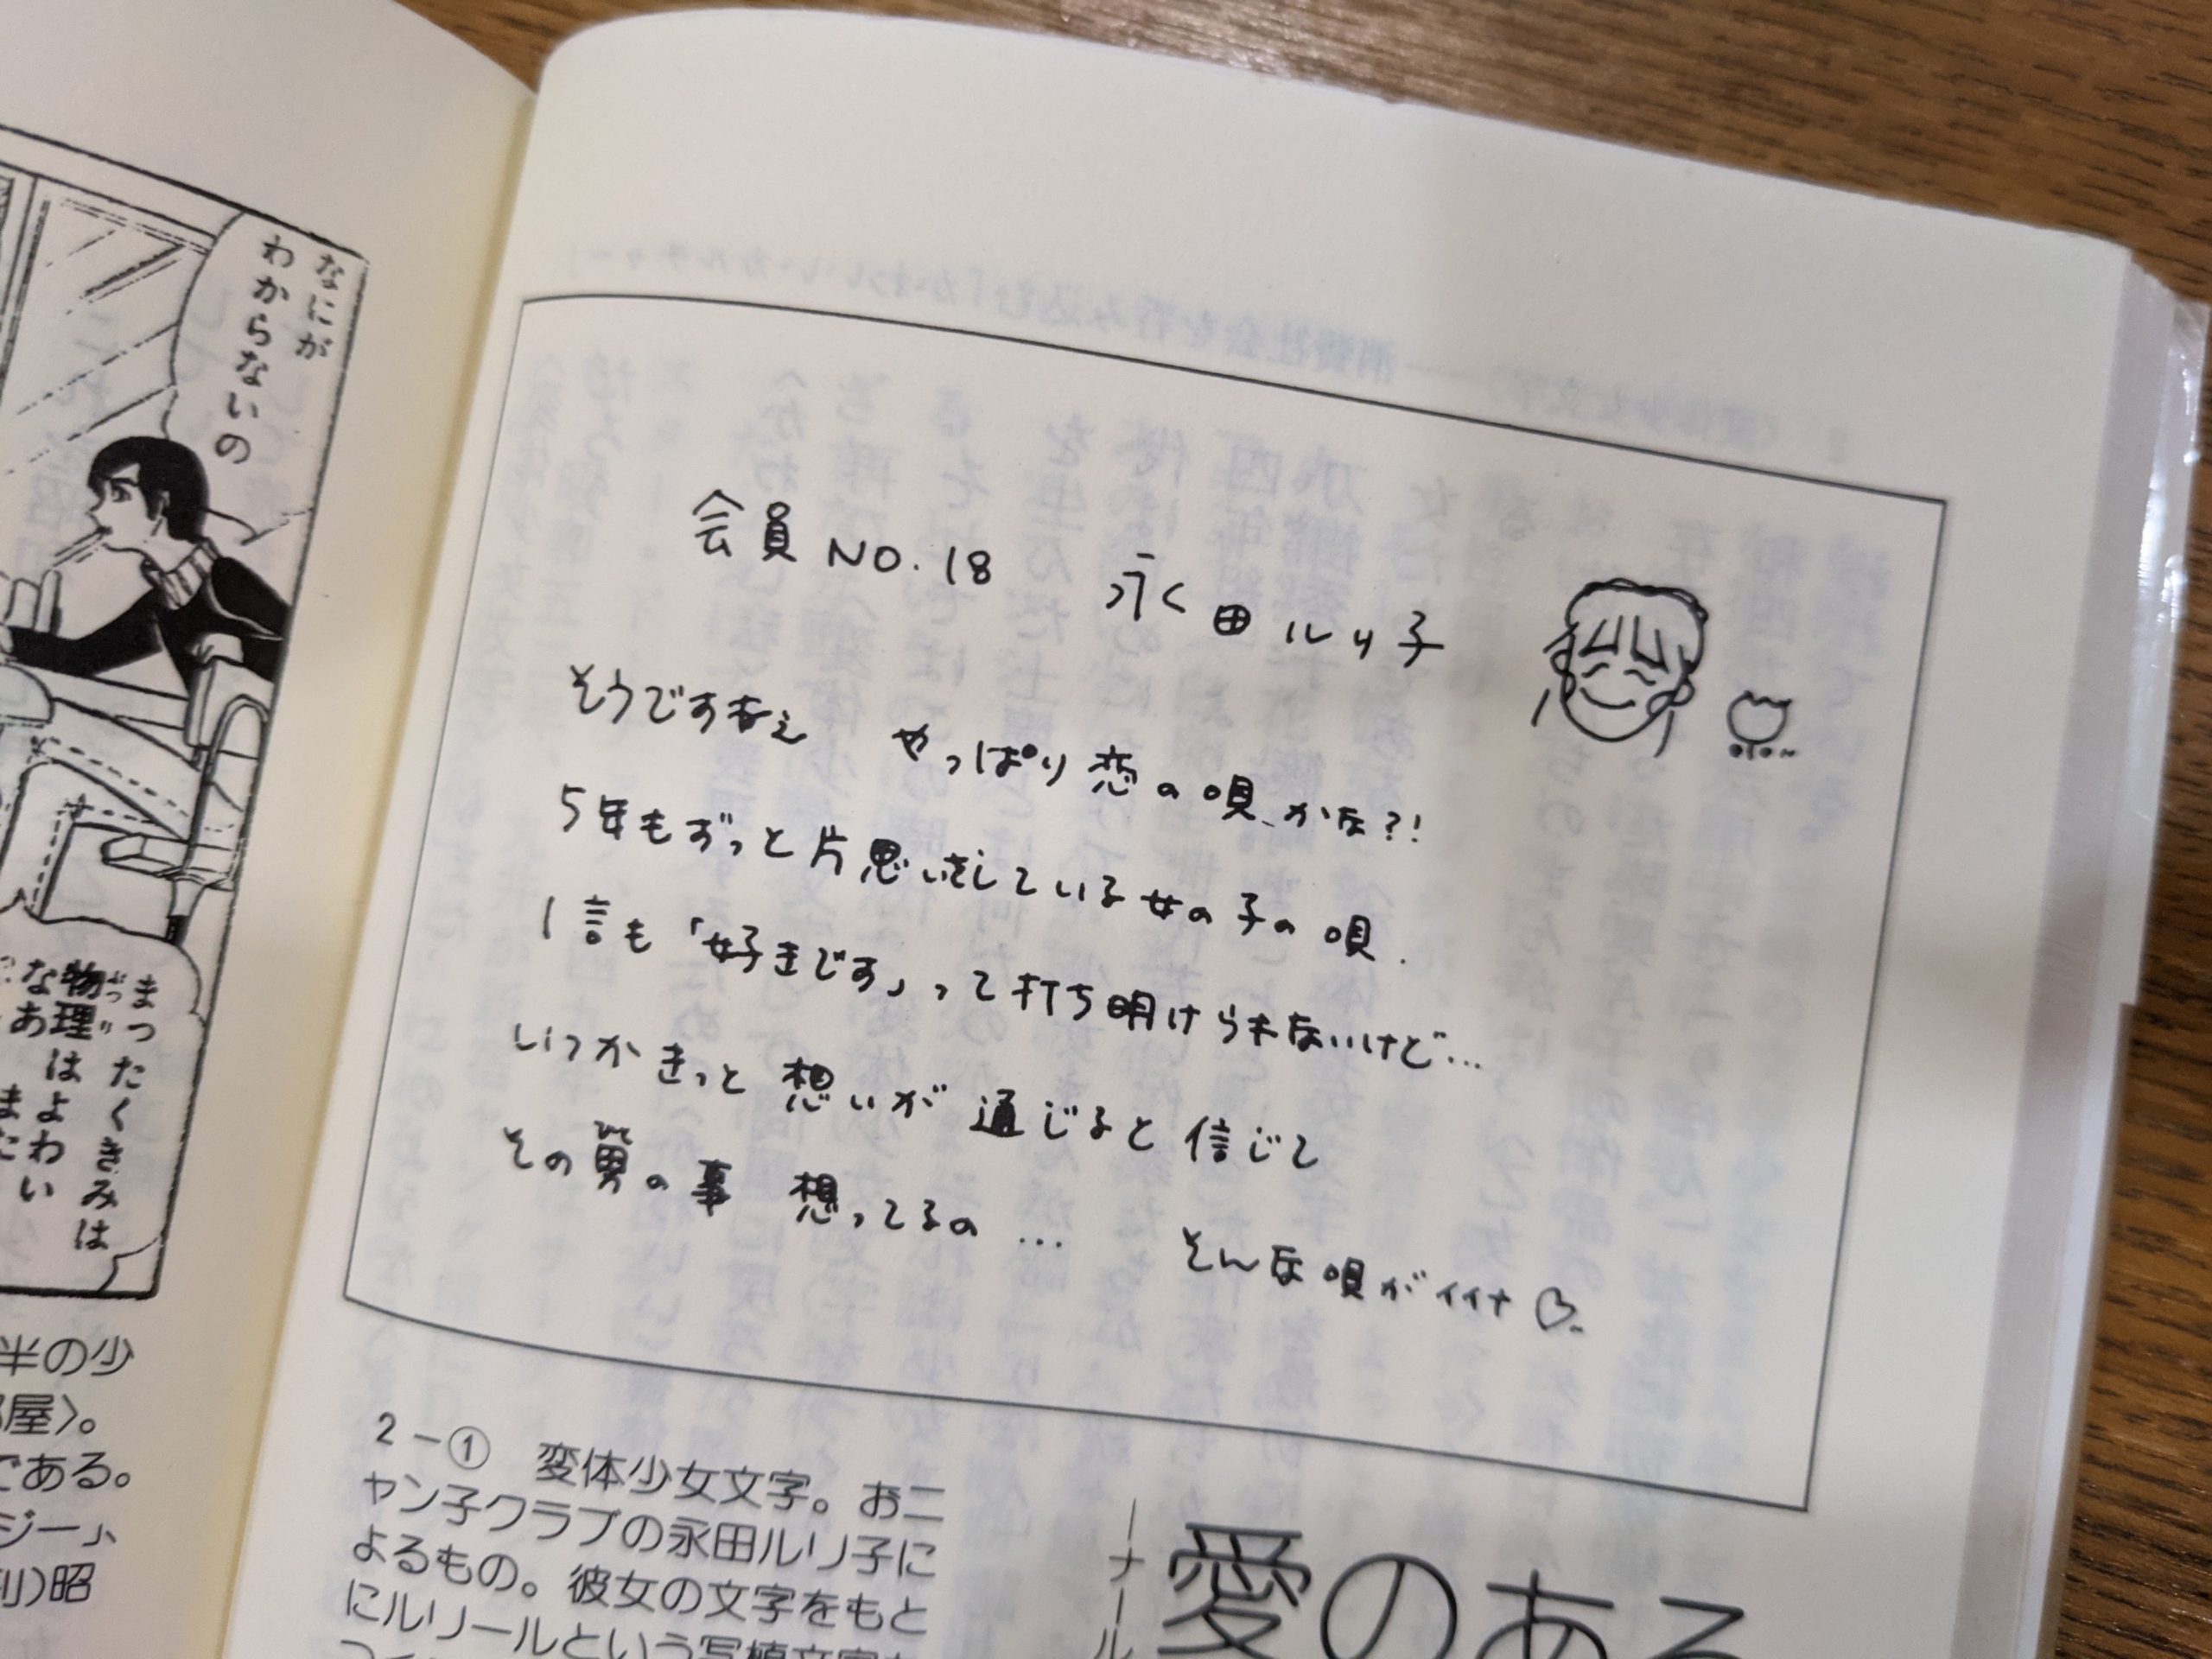 なにが
わからないの
まったくきみは
物理はよわい
なあ
半の少
部屋〉。
である。
ジー」、
刊)昭
会員 NO.18 永田ルリ子
そうですねェ やっぱり恋の唄、かな?!
5年もずっと片思いをしている女の子の唄.
1言も「好きです」って打ち明けられないけど…
いつかきっと 想いが 通じると 信じて
その男の事 想ってるの… そんな唄がイイナ♡.
ひと
2-① 変体少女文字。おニ
ャン子クラブの永田ルリ子に
よるもの。彼女の文字をもと
にルリールという写植文字が
ーナール
愛のある